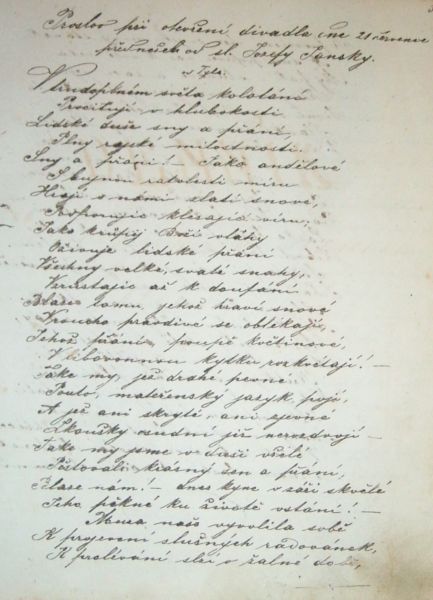 Proslov při otevření divadla dne 21 července
přednešen od sl. Josefy Jansky.
od Tyla.
V trudoplném světa kolotání
Procitují v hlubokosti
Lidské duše sny a přání,
Plny rajské milostnosti.
Sny a přání! – Jako andělové
S bujnou ratolestí míru
Hrají s námi zlatí snové,
Podporujíc klesající víru,
Jako krůpěj Boží vláhy
Oživuje lidské přání
Všechny velké, svaté snahy,
Vzrůstajíc až k doufání
Blaze tomu, jehož hraví snové
V roucho pravdivé se oblékají,
Jehož přání, poupě květinové,
V libovonnou kytku rozkvétají! –
Také my, již drahé pevné
Pouto, mateřský jazyk, pojí,
A jež ani skryté, ani zjevné
Zkoušky osudní již nerozdvojí –
Také my jsme v duši vřelé
Pěstovali krásný sen a přání,
Blaze nám! – dnes kyne v záři skvělé
Jeho pěkné ku životě vstání! –
Musa naše vyvolila sobě
K projevení slušných radovánek,
K prolévání slzí v žalné době,